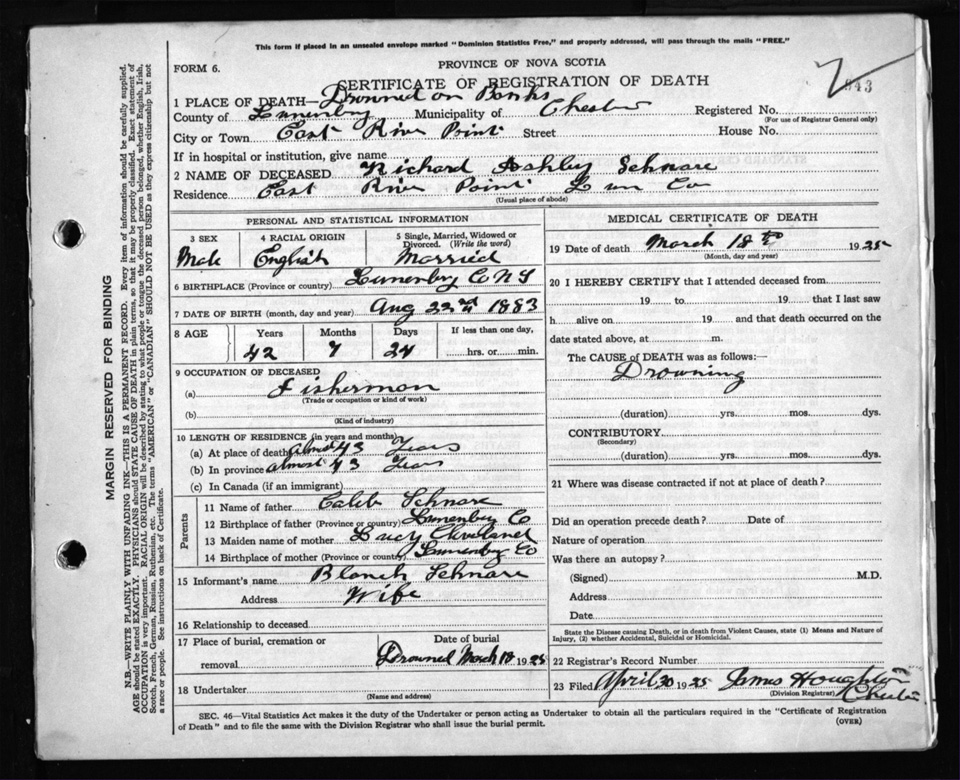 This form if placed in an unsealed envelope marked "Dominion Statistics Free," and properly addressed, will pass through the mails "FREE."
FORM 6.
PROVINCE OF NOVA SCOTIA
CERTIFICATE OF REGISTRATION OF DEATH
943
1 PLACE OF DEATH— Drowned on Banks
County of Lunenburg Municipality of Chester Registered No.
(For use of Registrar General only)
City or Town East River Point Street House No.
If in hospital or institution, give name
2 NAME OF DECEASED Richard Ashley Schnare
Residence East River Point Lun Co
(Usual place of abode)
PERSONAL AND STATISTICAL INFORMATION
3 SEX Male
4 RACIAL ORIGIN English
5 Single, Married, Widowed or Divorced. (Write the word) Married
6 BIRTHPLACE (Province or country) Lunenburg Co N S
7 DATE OF BIRTH (month, day and year) Aug 22nd 1883
8 AGE Years Months Days If less than one day,
42 7 24 hrs. or min.
9 OCCUPATION OF DECEASED
(a) Fisherman
(Trade or occupation or kind of work)
(b)
(Kind of industry)
10 LENGTH OF RESIDENCE (in years and months)
(a) At place of death almost 43 Years
(b) In province almost 43 Years
(c) In Canada (if an immigrant)
Parents
11 Name of father Caleb Schnare
12 Birthplace of father (Province or country) Lunenburg Co
13 Maiden name of mother Cleveland
14 Birthplace of mother (Province or country) Lunenburg Co
15 Informant's name Blanch Schnare
Address Wife
16 Relationship to deceased
17 Place of burial, cremation or removal Date of burial
Drowned March 18 1925
18 Undertaker
(Name and address)
MEDICAL CERTIFICATE OF DEATH
19 Date of death March 18th 1925
(Month, day and year)
20 I HEREBY CERTIFY that I attended deceased from
19 to 19 that I last saw
h alive on 19 and that death occurred on the
date stated above, at m.
The CAUSE of DEATH was as follows:—
Drowning
(duration) yrs. mos. dys.
CONTRIBUTORY
(Secondary)
(duration) yrs. mos. dys.
21 Where was disease contracted if not at place of death?
Did an operation precede death? Date of
Nature of operation
Was there an autopsy?
(Signed) M.D.
Address
Date
State the Disease causing Death, or in death from Violent Causes, state (1) Means and Nature of
Injury, (2) whether Accidental, Suicidal or Homicidal.
22 Registrar's Record Number
23 Filed April 30 1925 James Houghton
(Division Registrar) Chester
SEC. 46—Vital Statistics Act makes it the duty of the Undertaker or person acting as Undertaker to obtain all the particulars required in the "Certificate of Registration
of Death" and to file the same with the Division Registrar who shall issue the burial permit.
(OVER)
MARGIN RESERVED FOR BINDING
N.B.—WRITE PLAINLY WITH UNFADING INK—THIS IS A PERMANENT RECORD. Every items of information should be carefully supplied.
AGE should be stated EXACTLY. PHYSICIANS should STATE CAUSE OF DEATH in plain terms, so that it may be properly classified. Exact statement of
OCCUPATION is very important. RACIAL ORIGIN will be described by stating to what people or tongue the deceased person belonged, whether English, Irish,
Scotch, French, German, Russian, Ruthenian, etc. The terms "AMERICAN" or "CANADIAN" SHOULD NOT BE USED as they express citizenship but not
a race or people. See instructions on back of Certificate.